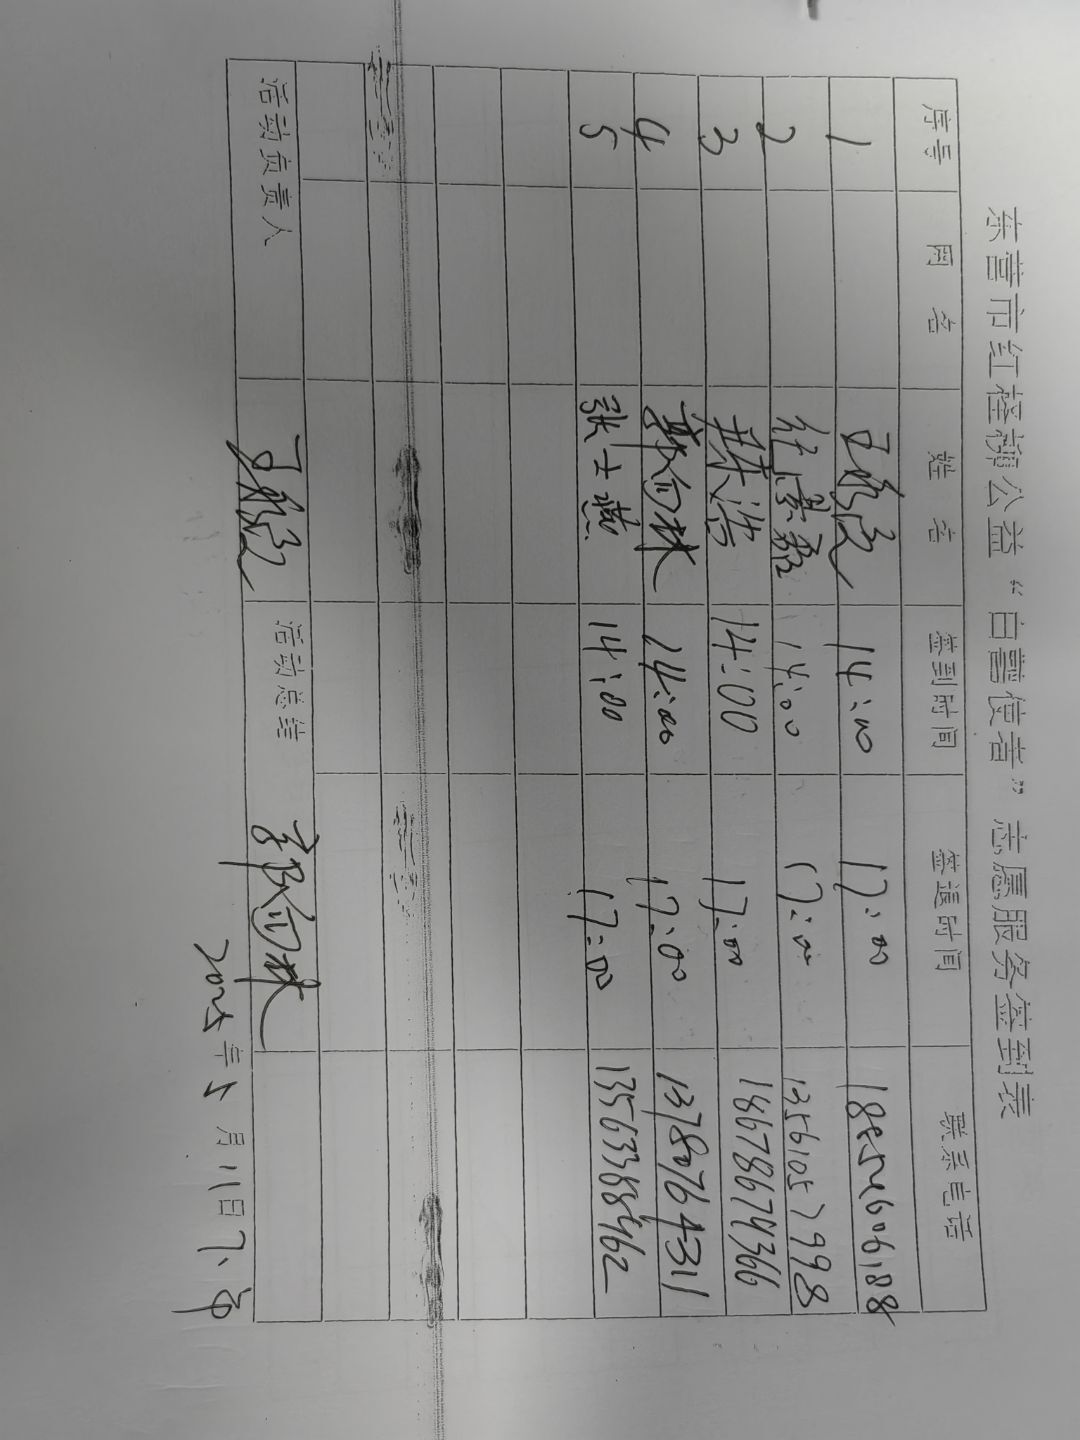 东营市红柽柳公益“白鹭使者”志愿服务签到表
序号 网名 姓名 签到时间 签退时间 联系电话
1 14:00 17:00
2 14:00 17:00 13561057998
3 浩 14:00 17:00 18678674366
4 14:00 17:00 13780764311
5 张士燕 14:00 17:00 13563388462
活动负责人 活动总结
2025年5月11日下午